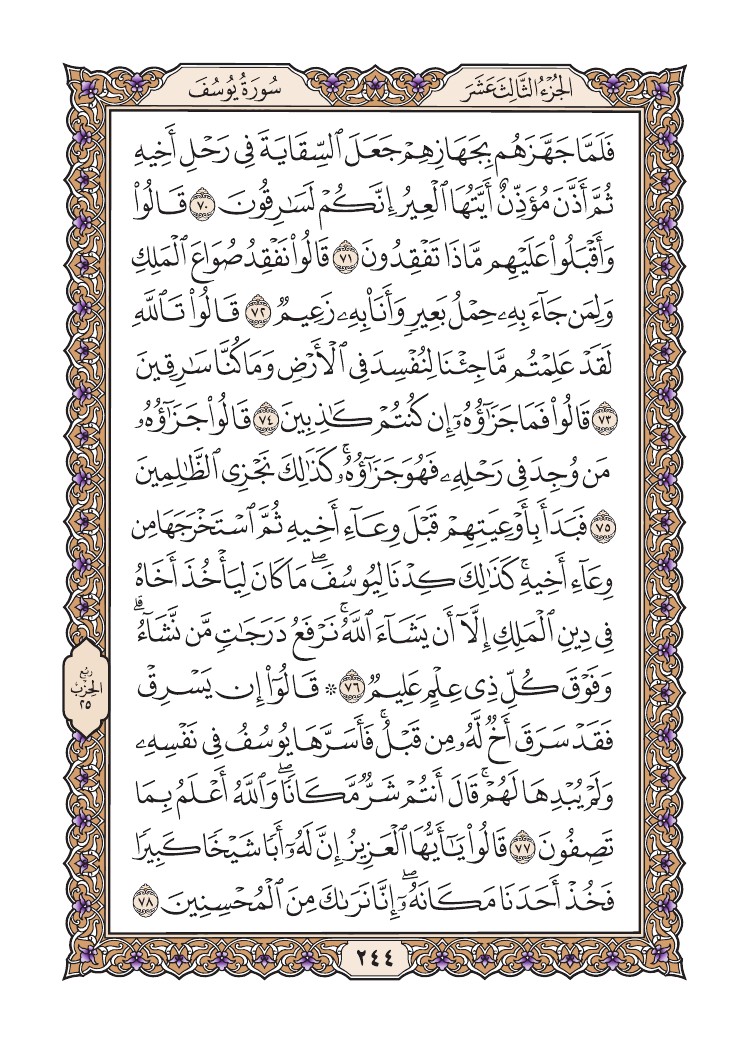 الجُزْءُ الثَّالِثَ عَشَرَ
سُورَةُ يُوسُفَ
فَلَمَّا جَهَّزَهُم بِجَهَازِهِمْ جَعَلَ ٱلسِّقَايَةَ فِى رَحْلِ أَخِيهِ
ثُمَّ أَذَّنَ مُؤَذِّنٌ أَيَّتُهَا ٱلْعِيرُ إِنَّكُمْ لَسَٰرِقُونَ ٧٠ قَالُوا۟
وَأَقْبَلُوا۟ عَلَيْهِم مَّاذَا تَفْقِدُونَ ٧١ قَالُوا۟ نَفْقِدُ صُوَاعَ ٱلْمَلِكِ
وَلِمَن جَآءَ بِهِۦ حِمْلُ بَعِيرٍ وَأَنَا۠ بِهِۦ زَعِيمٌ ٧٢ قَالُوا۟ تَٱللَّهِ
لَقَدْ عَلِمْتُم مَّا جِئْنَا لِنُفْسِدَ فِى ٱلْأَرْضِ وَمَا كُنَّا سَٰرِقِينَ
٧٣ قَالُوا۟ فَمَا جَزَٰٓؤُهُۥٓ إِن كُنتُمْ كَٰذِبِينَ ٧٤ قَالُوا۟ جَزَٰٓؤُهُۥ
مَن وُجِدَ فِى رَحْلِهِۦ فَهُوَ جَزَٰٓؤُهُۥ ۚ كَذَٰلِكَ نَجْزِى ٱلظَّٰلِمِينَ
٧٥ فَبَدَأَ بِأَوْعِيَتِهِمْ قَبْلَ وِعَآءِ أَخِيهِ ثُمَّ ٱسْتَخْرَجَهَا مِن
وِعَآءِ أَخِيهِ ۚ كَذَٰلِكَ كِدْنَا لِيُوسُفَ ۖ مَا كَانَ لِيَأْخُذَ أَخَاهُ
فِى دِينِ ٱلْمَلِكِ إِلَّآ أَن يَشَآءَ ٱللَّهُ ۚ نَرْفَعُ دَرَجَٰتٍ مَّن نَّشَآءُ ۗ
وَفَوْقَ كُلِّ ذِى عِلْمٍ عَلِيمٌ ٧٦ ۞ قَالُوٓا۟ إِن يَسْرِقْ
فَقَدْ سَرَقَ أَخٌ لَّهُۥ مِن قَبْلُ ۚ فَأَسَرَّهَا يُوسُفُ فِى نَفْسِهِۦ
وَلَمْ يُبْدِهَا لَهُمْ ۚ قَالَ أَنتُمْ شَرٌّ مَّكَانًا ۖ وَٱللَّهُ أَعْلَمُ بِمَا
تَصِفُونَ ٧٧ قَالُوا۟ يَٰٓأَيُّهَا ٱلْعَزِيزُ إِنَّ لَهُۥٓ أَبًا شَيْخًا كَبِيرًا
فَخُذْ أَحَدَنَا مَكَانَهُۥٓ ۖ إِنَّا نَرَىٰكَ مِنَ ٱلْمُحْسِنِينَ ٧٨
رُبُع
الحِزْب
٢٥
٢٤٤